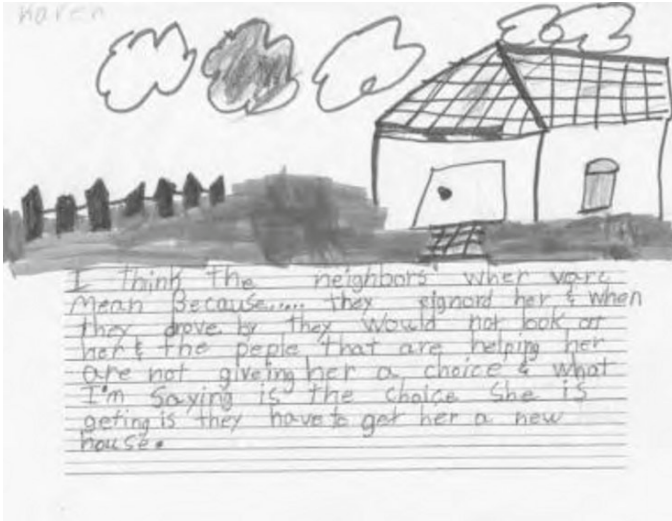 Karen
I think the neighbors' wher vary
Mean Because..... they eignord her & when
they drove by they would not look at
her & the peple that are helping her
are not giveing her a choice & what
I'm Saying is the choice She is
geting is they have to get her a new
house.